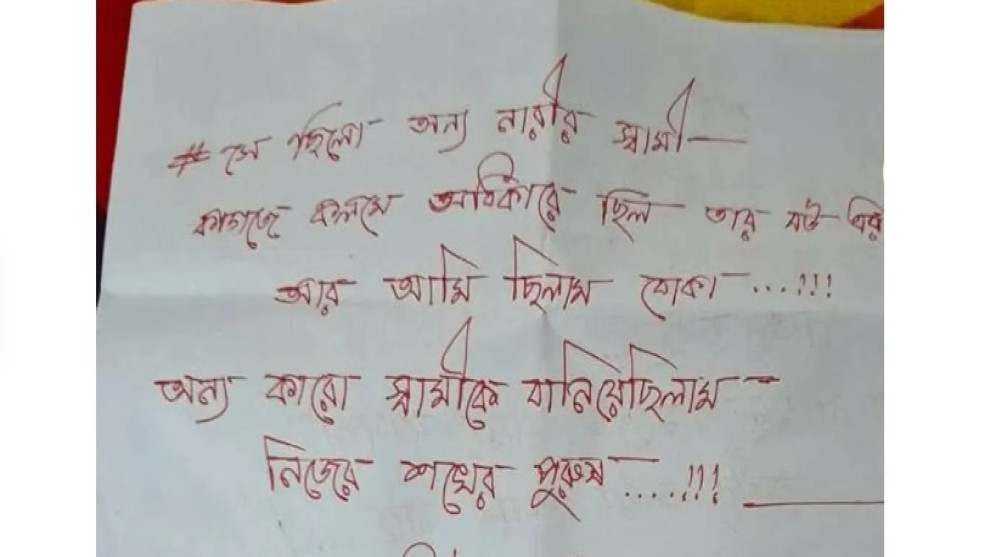 # সে ছিলো অন্য নারীর স্বামী
কাগজে কলমে অধিকারে ছিল তার বউ এরি
আর আমি ছিলাম বোকা ...!!!
অন্য কারো স্বামীকে বানিয়েছিলাম
নিজের শখের পুরুষ ....!!!